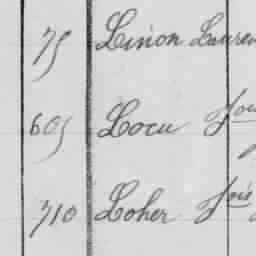 75 Linon Lauren
605 Locu Jou
710 Loher Jois